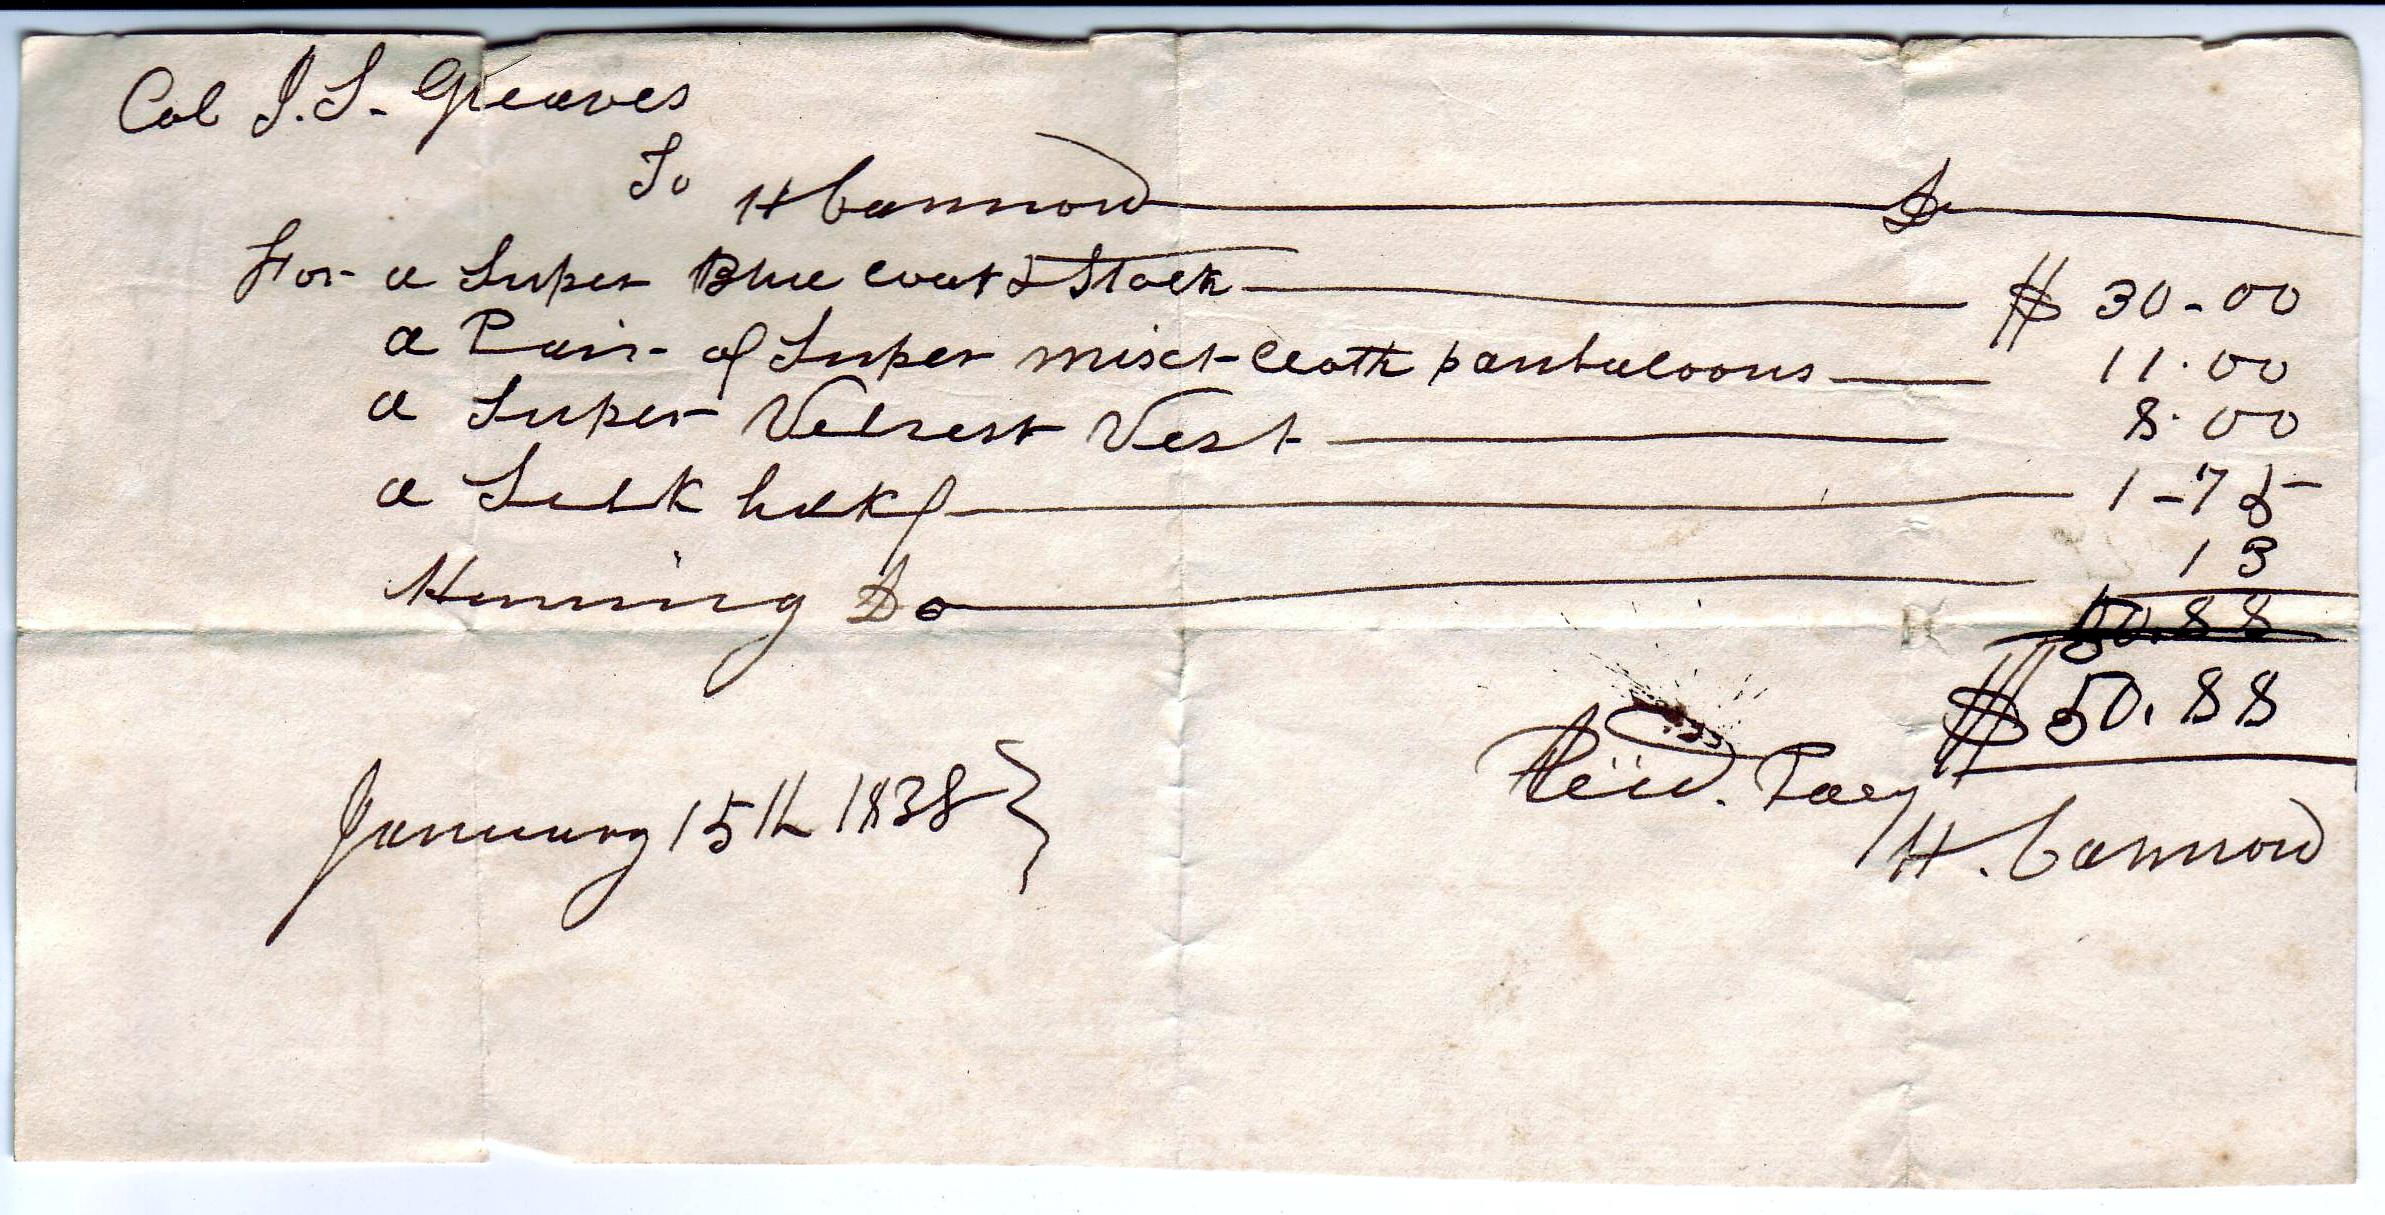 Col J. S. Greaves
To H Cannon Dr
For a Super Blue coat & Stock $ 30-00
a Pair of Super mixt cloth pantaloons 11.00
a Super Velvest Vest 8.00
a Silk hdkf 1-75
Hemming Do 13
50.88
$ 50.88
January 15th 1838 Recd. Pay
H. Cannon